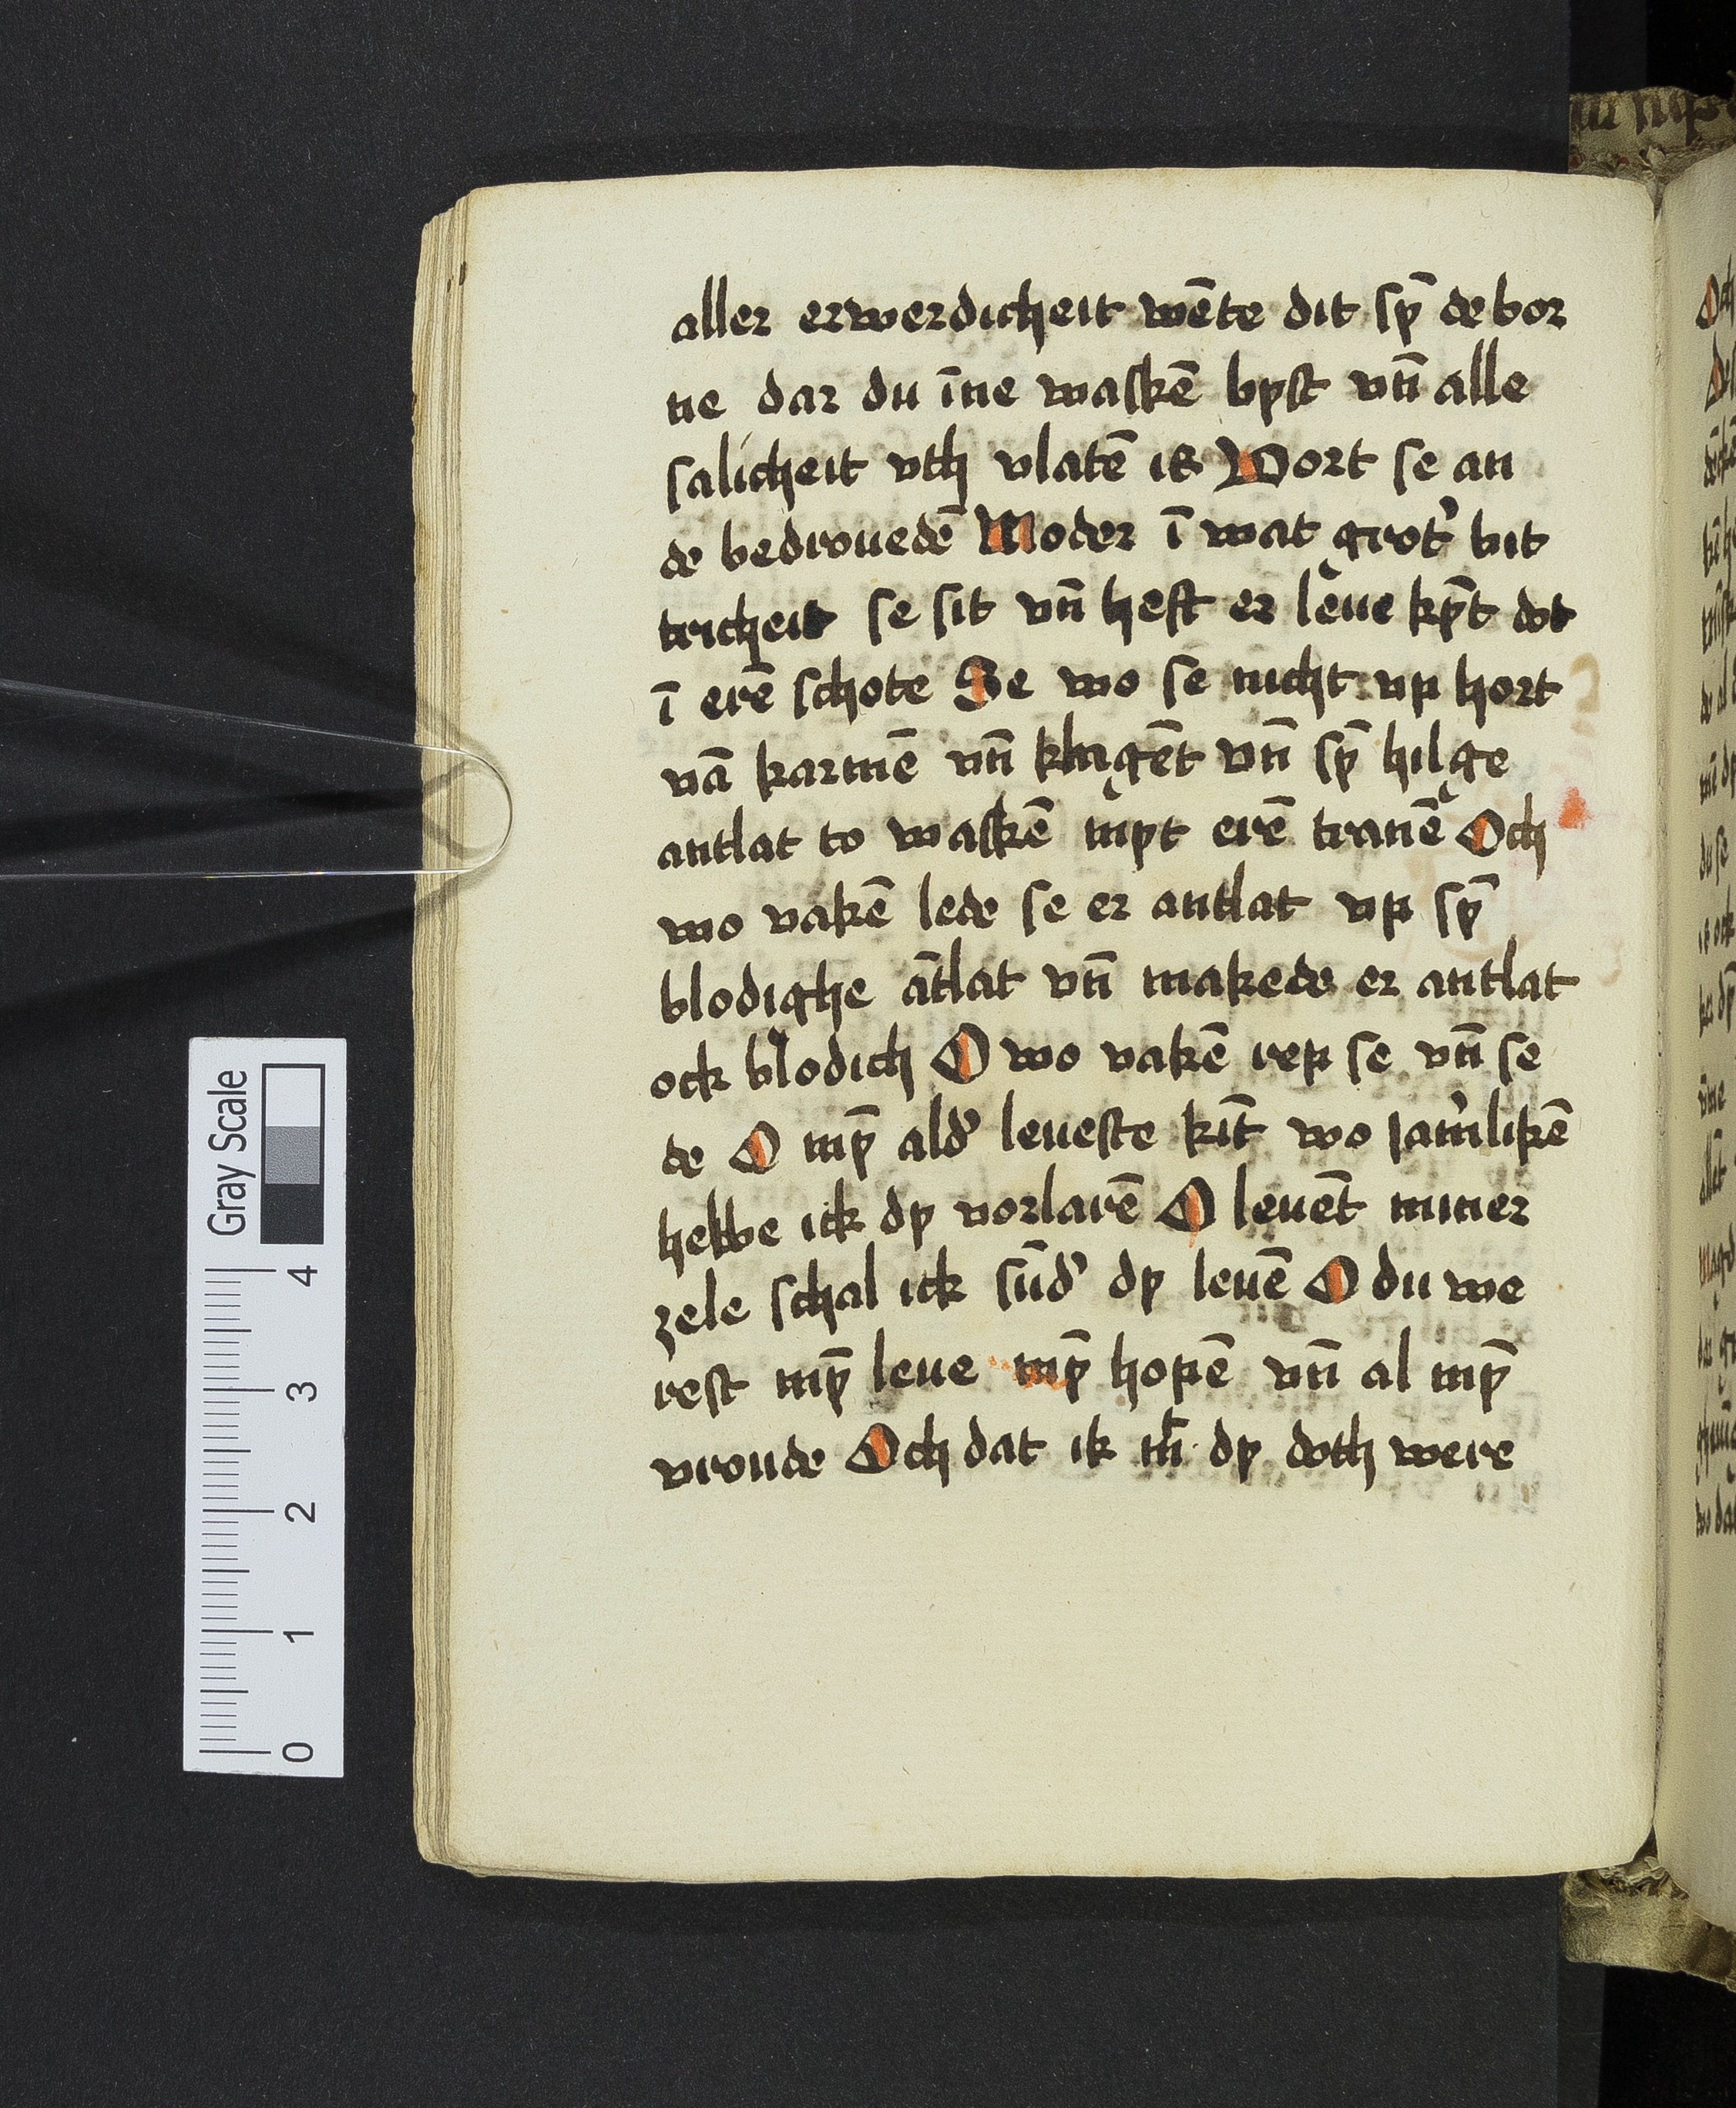 aller erwerdicheit wēte dit sȳ de bor
ne dar du īne waskē byst vn̄ alle
salicheit vth vlatē is Wort se an
de bedrouedē Moder ī wat grot' bit
tricheit se sit vn̄ heft er leue kȳt dot
ī erē schote Se wo se nicht up hort
vā karmē vn̄ klagēt vn̄ sȳ hilge
antlat to waskē myt erē tranē Och
wo vakē lede se er antlat up sȳ
blodighe ātlat vn̄ makede er antlat
ock blodich O wo vakē rep se vn̄ se
de O mȳ ald' leueste kīt wo iam'likē
hebbe ick dy vorlarē O leuēt miner
zele schal ick sūd' dy leuē O du we
rest mȳ leue mȳ hopē vn̄ al mȳ
vroude Och dat ik m̄ dy doth were
Gray Scale
0 1 2 3 4